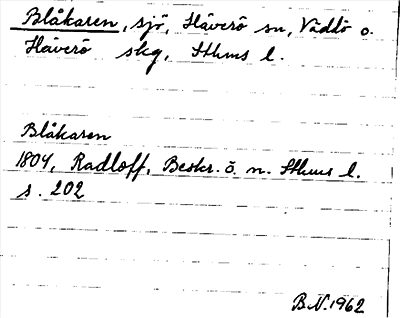 Blåkaren, sjö, Häverö sn, Väddö o.
Häverö skg, Sthms l.
Blåkaren
1804, Radloff, Beskr. ö. n. Sthms l.
s. 202
B.N. 1962